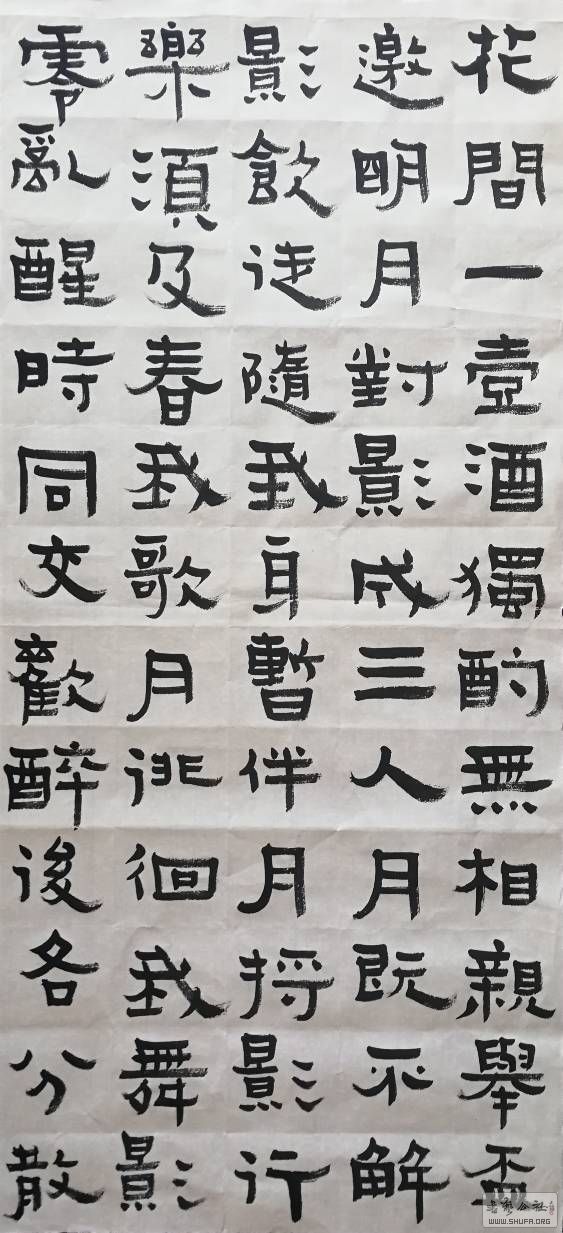 花間一壺酒獨酌無相親舉盃
邀明月對影成三人月既不解
影飲徒隨我身暫伴月将影行
樂須及春我歌月徘徊我舞影
零亂醒時同交歡醉後各分散
WWW.SHUFA.ORG